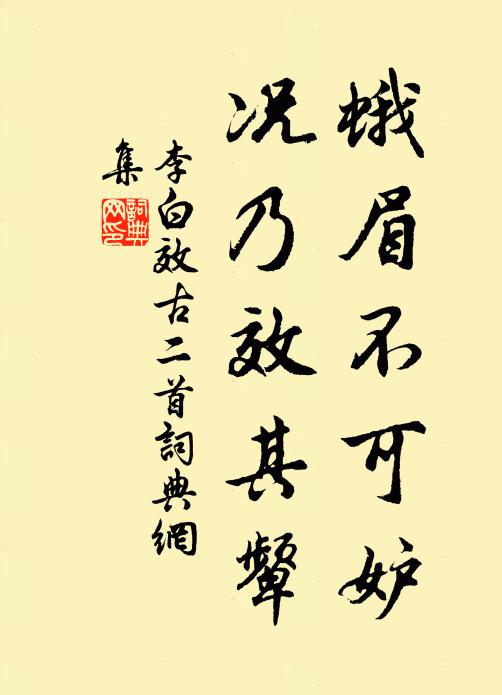 蛾眉不可妒
况乃效其顰
李白效古二首詞典網
集
詞典網印